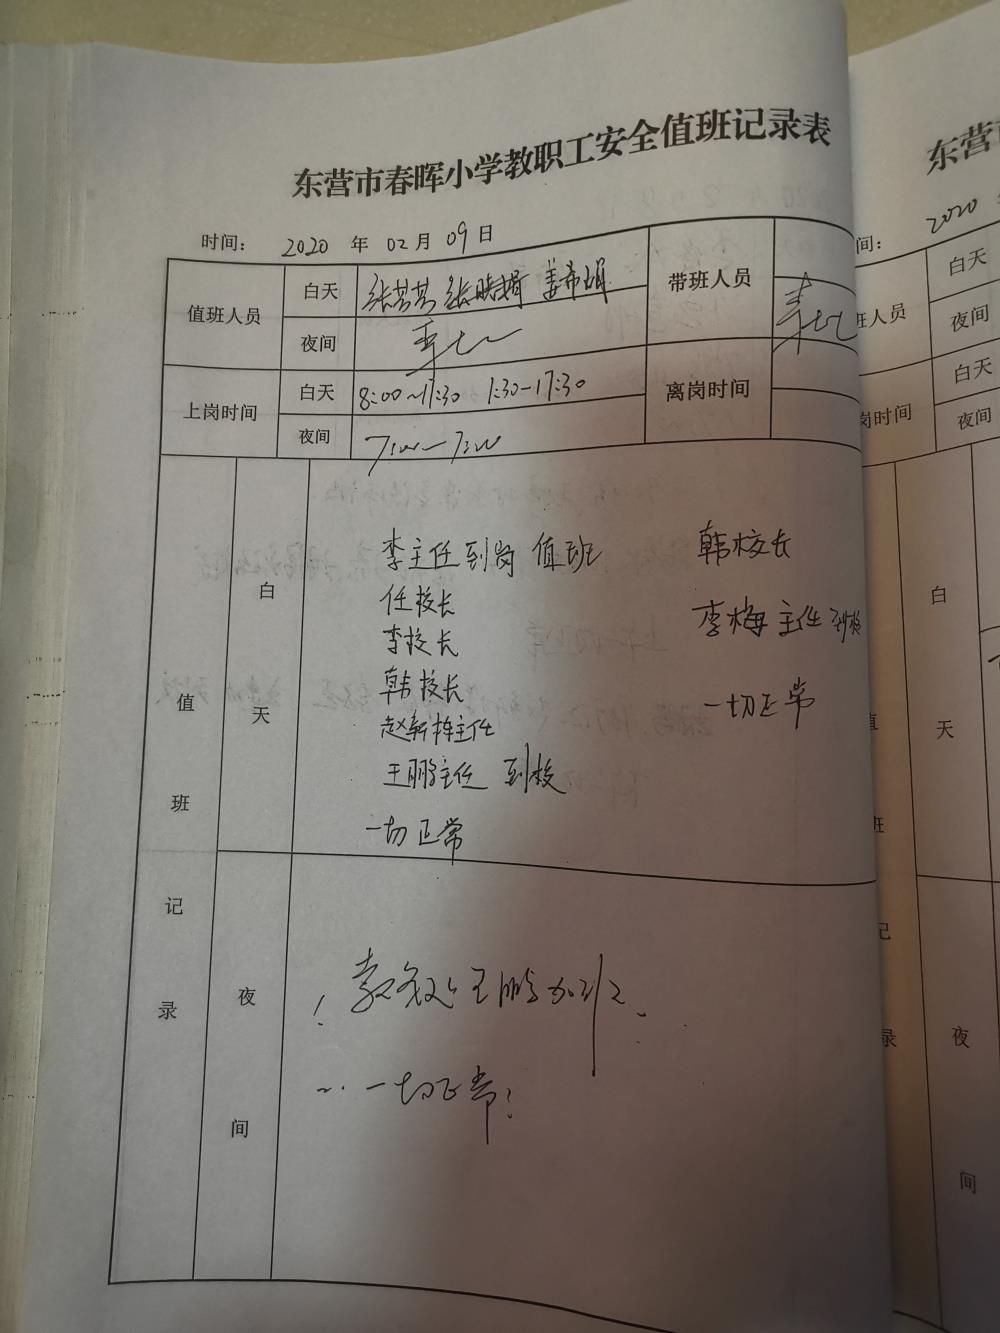 东营市春晖小学教职工安全值班记录表
东营
时间： 2020 年 02 月 09 日
间： 2020
值班人员 白天 张芳芳 张晓娟 姜希娟 带班人员
夜间 李
上岗时间 白天 8:00~11:30 1:30-17:30 离岗时间
夜间 7:00-7:00
班人员 白天
夜间
岗时间 白天
夜间
值班记录
白天
李主任到岗 值班 韩校长
任校长
李校长 李梅主任到校
韩校长
赵新梅主任 一切正常
王鹏主任 到校
一切正常
夜间
王鹏
一切正常
值班记录
白天
夜间